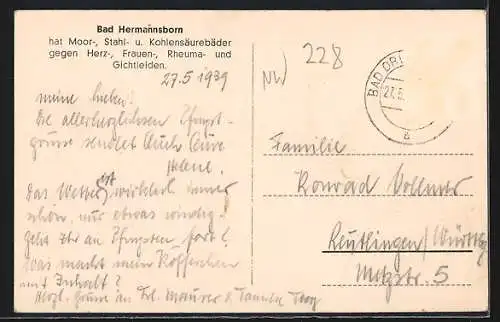 Bad Hermannsborn
hat Moor-, Stahl- u. Kohlensäurebäder
gegen Herz-, Frauen-, Rheuma- und
Gichtleiden.
27.5 1939
meine Lieben!
Die allerherzlichsten Pfingst-
grüsse sendet Euch Eure
Helene.
Das Wetter ist wirklich
schön, nur etwas windig.
Geht Ihr an Pfingsten fort?
was macht mein Kofferchen
mit Inhalt?
Herzl. Grüsse an Frl. Maurer u. Familie
NW
228
BAD DRI
27.5.
a
Familie
Konrad Vollmer
Reutlingen/Württbg
Metzstr. 5